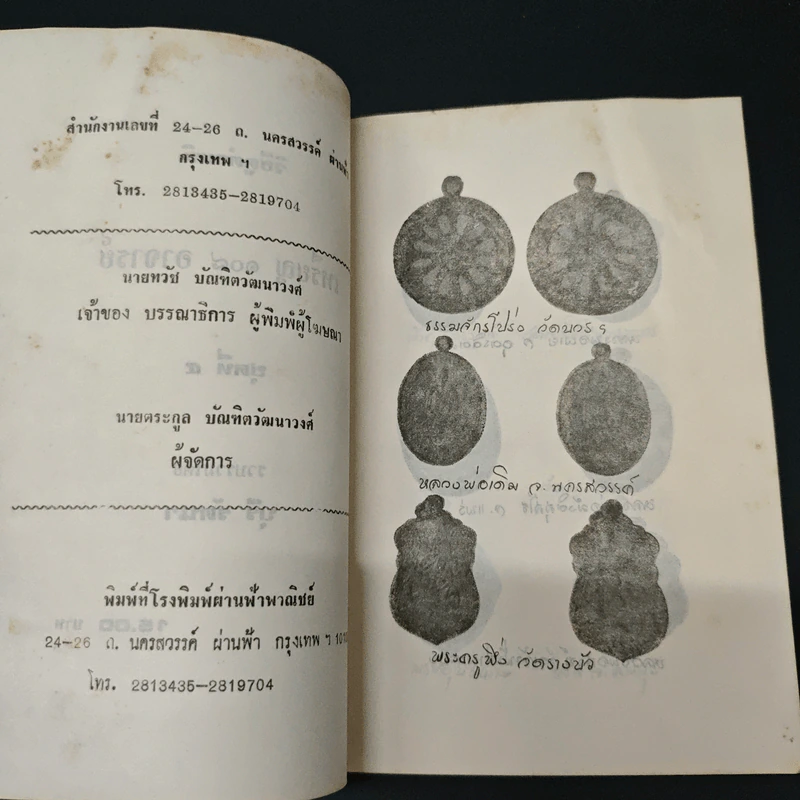 สำนักงานเลขที่ 24-26 ถ. นครสวรรค์ ผ่านฟ้า
กรุงเทพ ฯ
โทร. 2813435-2819704
นายทวัช บัณฑิตวัฒนาวงศ์
เจ้าของ บรรณาธิการ ผู้พิมพ์ผู้โฆษณา
นายตระกูล บัณฑิตวัฒนาวงศ์
ผู้จัดการ
พิมพ์ที่โรงพิมพ์ผ่านฟ้าพาณิชย์
24-26 ถ. นครสวรรค์ ผ่านฟ้า กรุงเทพ ฯ
โทร. 2813435-2819704
ธรรมจักรโปร่ง วัดบวร ฯ
หลวงพ่อเดิม จ. นครสวรรค์
พระครูฟึ่ง วัดรางบัว